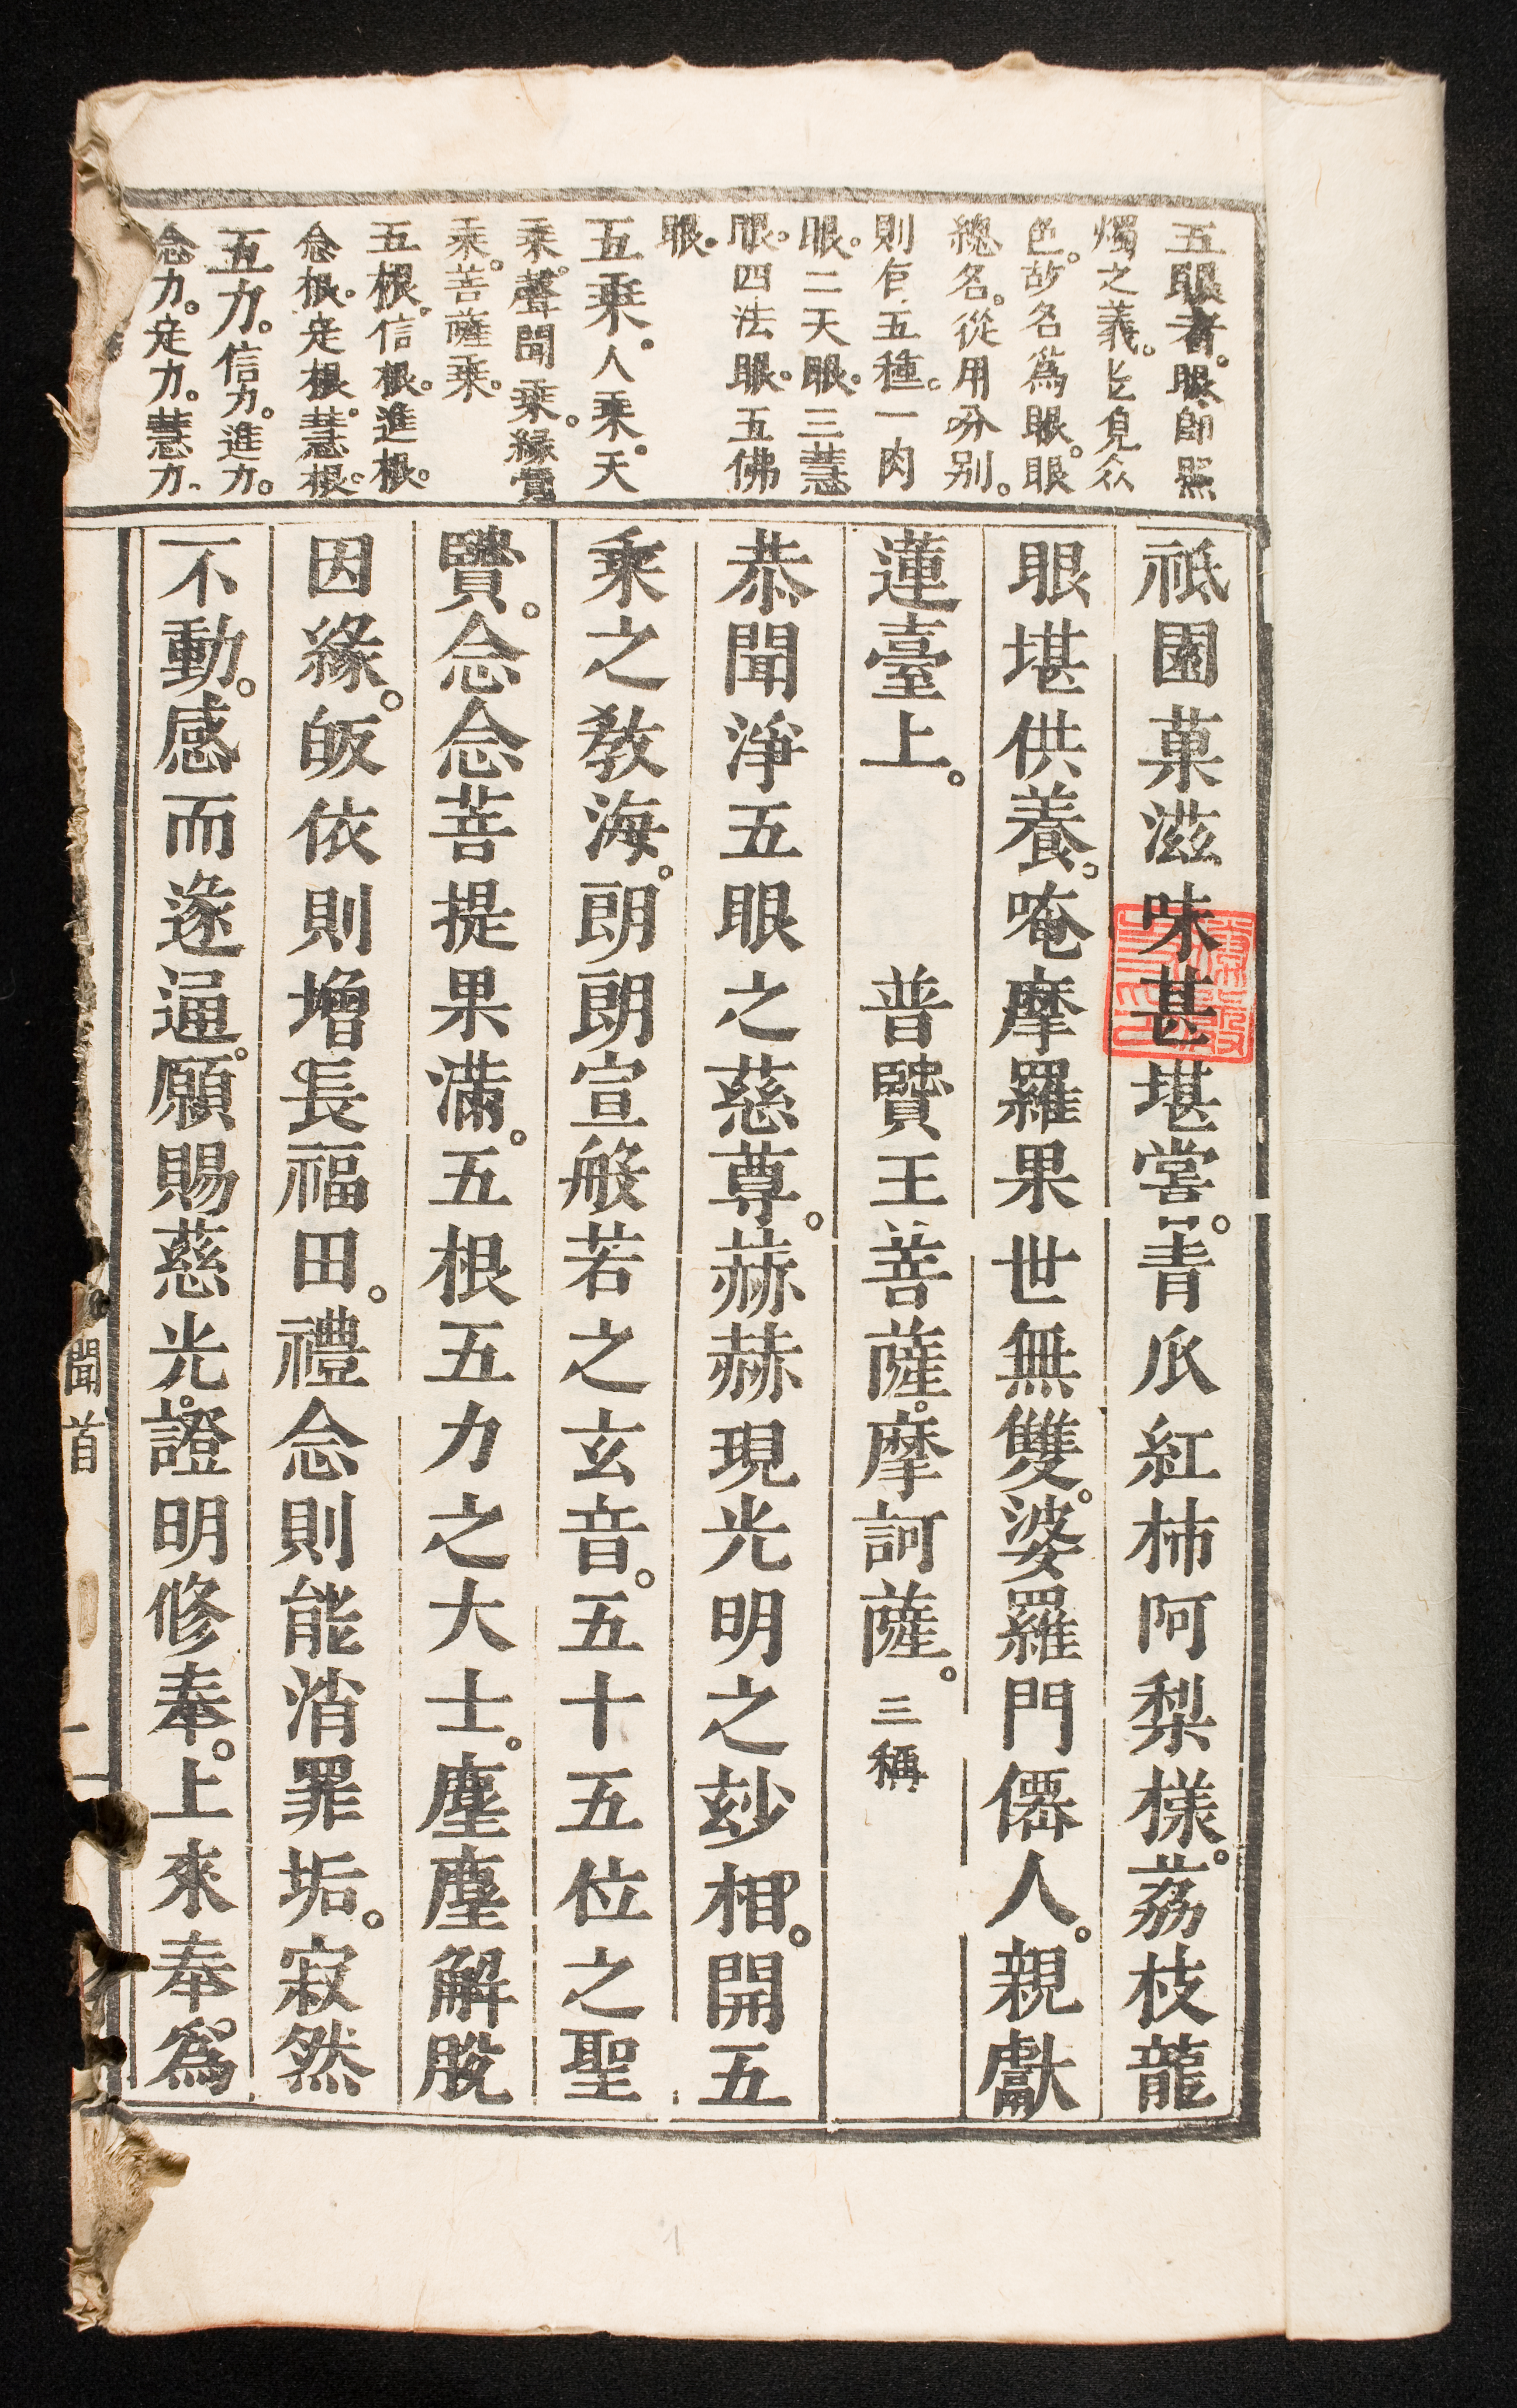 五眼者。眼卽照
燭之義。能見众
色。故名爲眼。眼
總名。從用分别。
則有五種。一肉
眼。二天眼。三慧
眼。四法眼。五佛
眼。
五乘。人乘。天
乘。聲聞乘。緣覺
乘。菩薩乘。
五根。信根。進根。
念根。定根。慧根。
五力。信力。進力。
念力。定力。慧力。
祇園菓滋味甚堪嘗。青瓜紅柿阿梨樣。荔枝龍
眼堪供養。唵摩羅果世無雙。婆羅門僊人。親獻
蓮臺上。 普賢王菩薩。摩訶薩。三稱
恭聞淨五眼之慈尊。赫赫現光明之玅相。開五
乘之教海。朗朗宣般若之玄音。五十五位之聖
賢。念念菩提果滿。五根五力之大士。塵塵解脫
因緣。皈依則增長福田。禮念則能消罪垢。寂然
不動。感而遂通。願賜慈光。證明修奉。上來奉爲
聞首